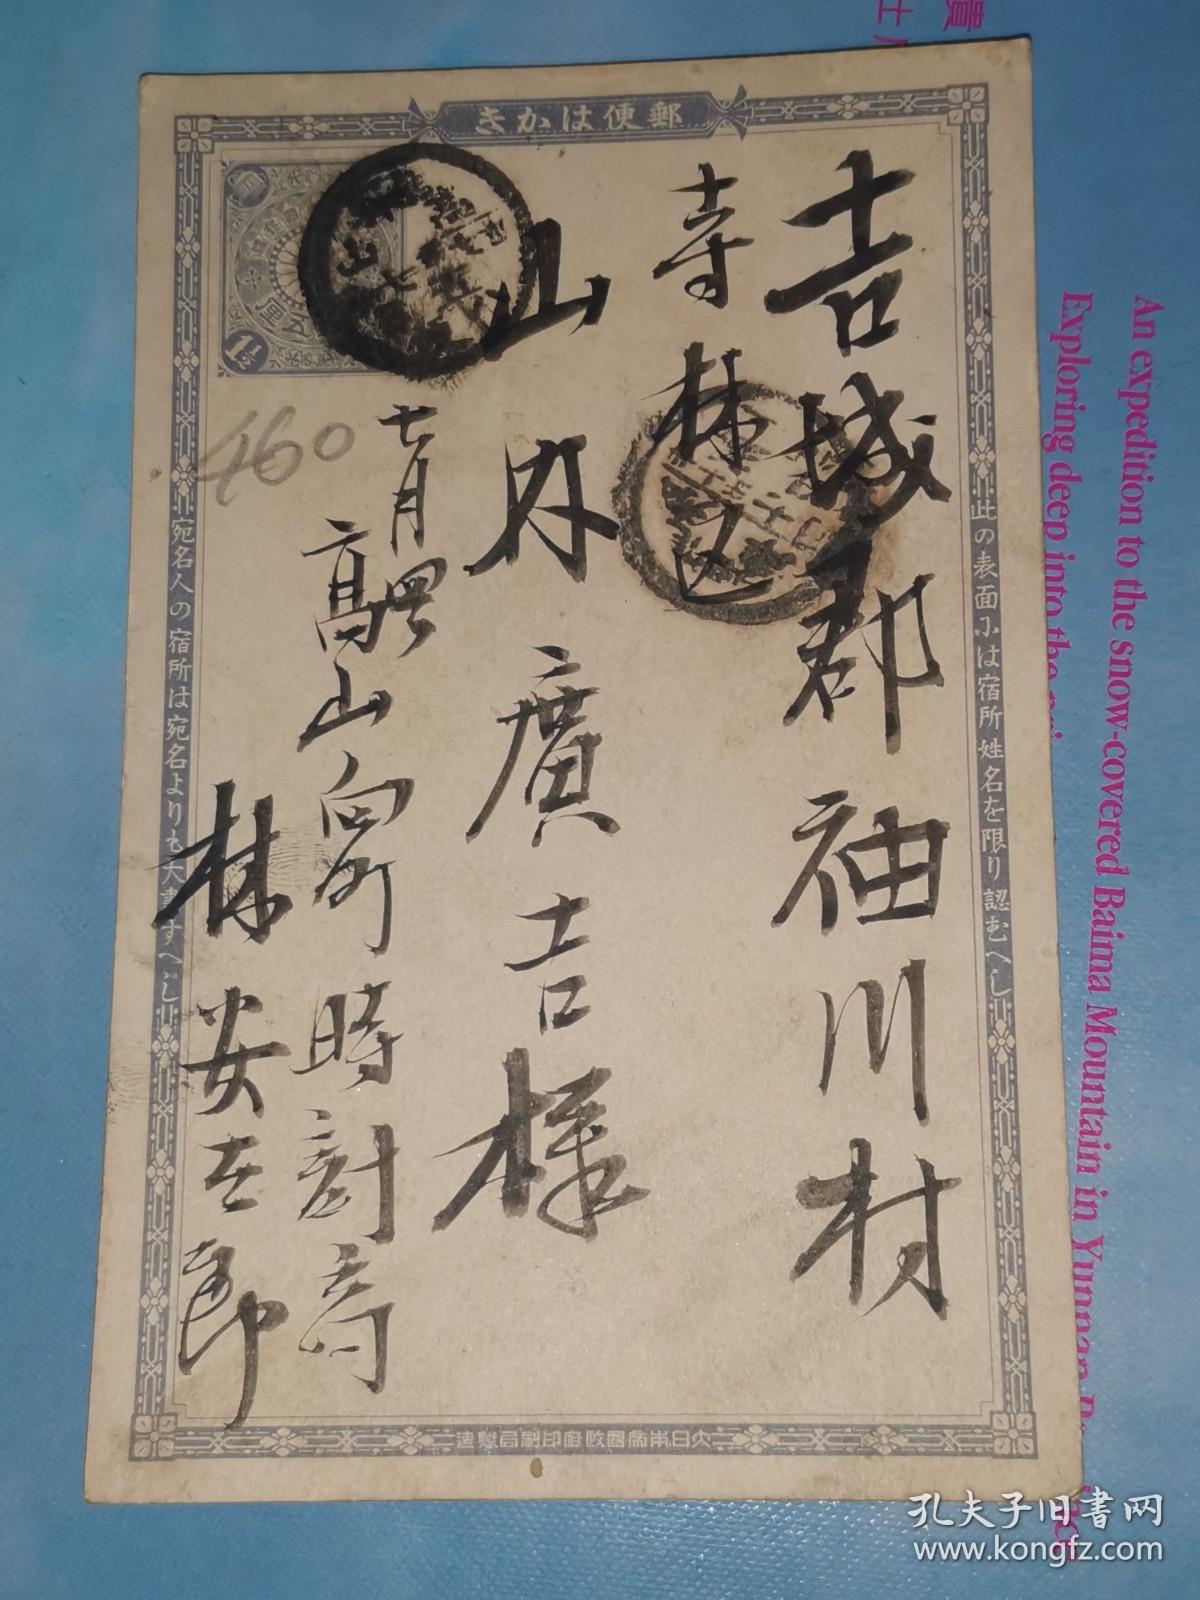 郵便はかき
吉城郡袖川村
寺林区
山内廣吉様
七月四日
高山向町時計商
林安太郎
460
此の表面には宿所姓名を限り認むへし
宛名人の宿所は宛名よりも大書すへし
大日本帝国政府印刷局製造
1½ Sn
An expedition to the snow-covered Baima Mountain in Yunnan
Exploring deep into the
孔夫子旧书网
www.kongfz.com